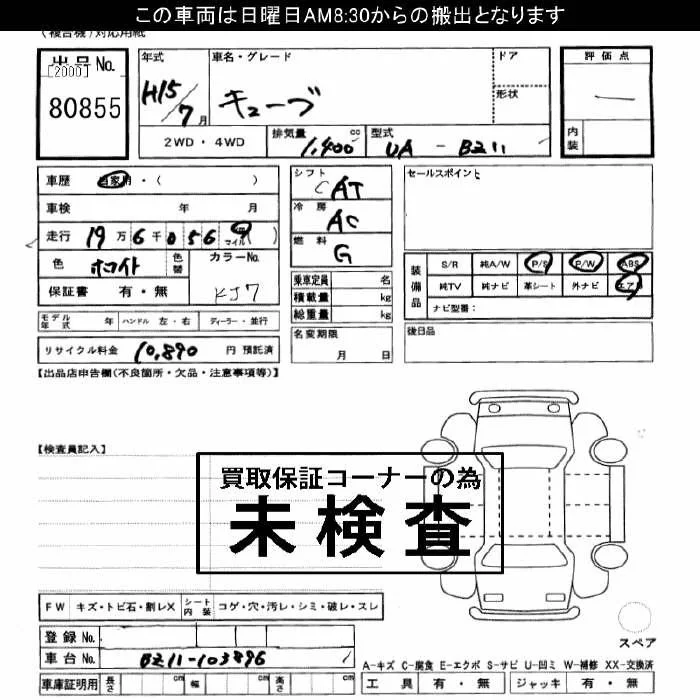 この車両は日曜日AM8:30からの搬出となります
(複合機)対応用紙
出品No.
[2000]
80855
年式
H15/7月
車名・グレード
キューブ
ドア
形状
評価点
内装
2WD・4WD
排気量
1,400cc
型式
UA - BZ11
車歴
自家用・( )
車検 年 月
走行 19万6千056 マイル( )
色 ホワイト
色替
カラーNo.
KJ7
保証書 有・無
シフト
CAT
冷房
AC
燃料
G
乗車定員 名
積載量 kg
総重量 kg
セールスポイント
装備品
S/R 純A/W P/S P/W ABS
純TV 純ナビ 革シート 外ナビ エアB
ナビ型番:
モデル年式 年 ハンドル 左・右 ディーラー・並行
名変期限
月 日
後日品
リサイクル料金 10,890 円 預託済
【出品店申告欄(不良箇所・欠品・注意事項等)】
【検査員記入】
買取保証コーナーの為
未検査
FW キズ・トビ石・割レX シート内装 コゲ・穴・汚レ・シミ・破レ・スレ
登録No.
車台No. BZ11-103896
スペア
A-キズ C-腐食 E-エクボ S-サビ U-凹ミ W-補修 XX-交換済
車庫証明用 長さ cm 幅 cm 高さ cm
工具 有・無 ジャッキ 有・無